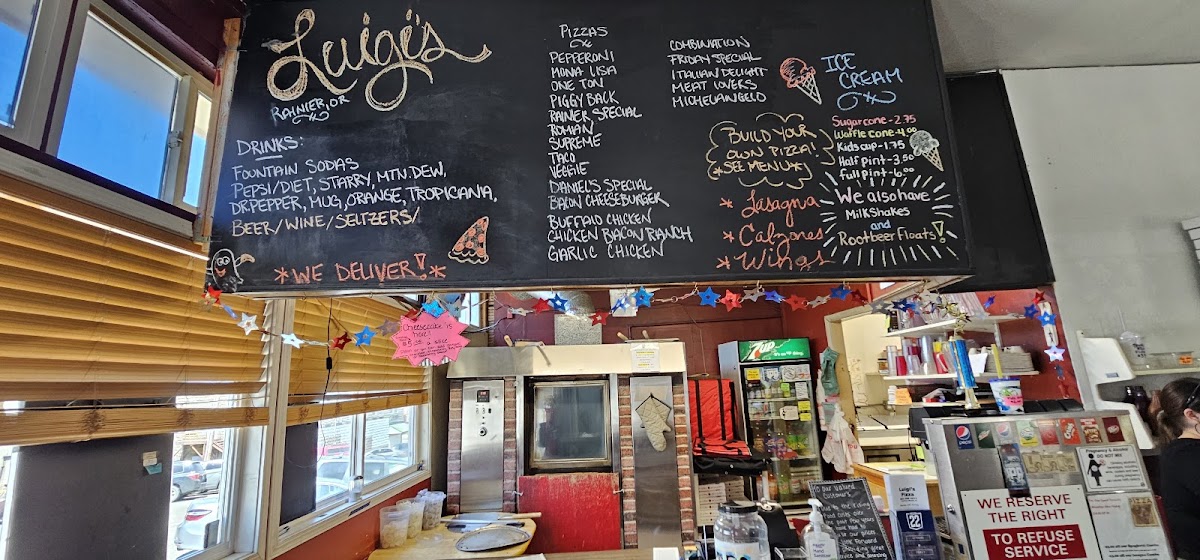 Luigi's
RAINIER, OR
DRINKS:
FOUNTAIN SODAS
PEPSI/DIET, STARRY, MTN.DEW,
DR.PEPPER, MUG, ORANGE, TROPICANA,
BEER/WINE/SELTZERS/
*WE DELIVER!*
PIZZAS
PEPPERONI
MONA LISA
ONE TON
PIGGY BACK
RAINIER SPECIAL
ROMAN
SUPREME
TACO
VEGGIE
DANIEL'S SPECIAL
BACON CHEESEBURGER
BUFFALO CHICKEN
CHICKEN BACON RANCH
GARLIC CHICKEN
COMBINATION
FRIDAY SPECIAL
ITALIAN DELIGHT
MEAT LOVERS
MICHELANGELO
BUILD YOUR
OWN PIZZA!
*SEE MENU*
* Lasagna
* Calzones
* Wings
ICE
CREAM
Sugar cone - 2.75
Waffle cone - 4.00
Kids cup - 1.75
Half pint - 3.50
full pint - 6.00
We also have
MilkShakes
and
Rootbeer Floats!
Cheesecake is
here!
7UP
to our Valued
Customers
Luigi's
Pizza
22
pepsi
WE RESERVE
THE RIGHT
TO REFUSE
SERVICE
Pregnancy & Alcohol
DO NOT MIX